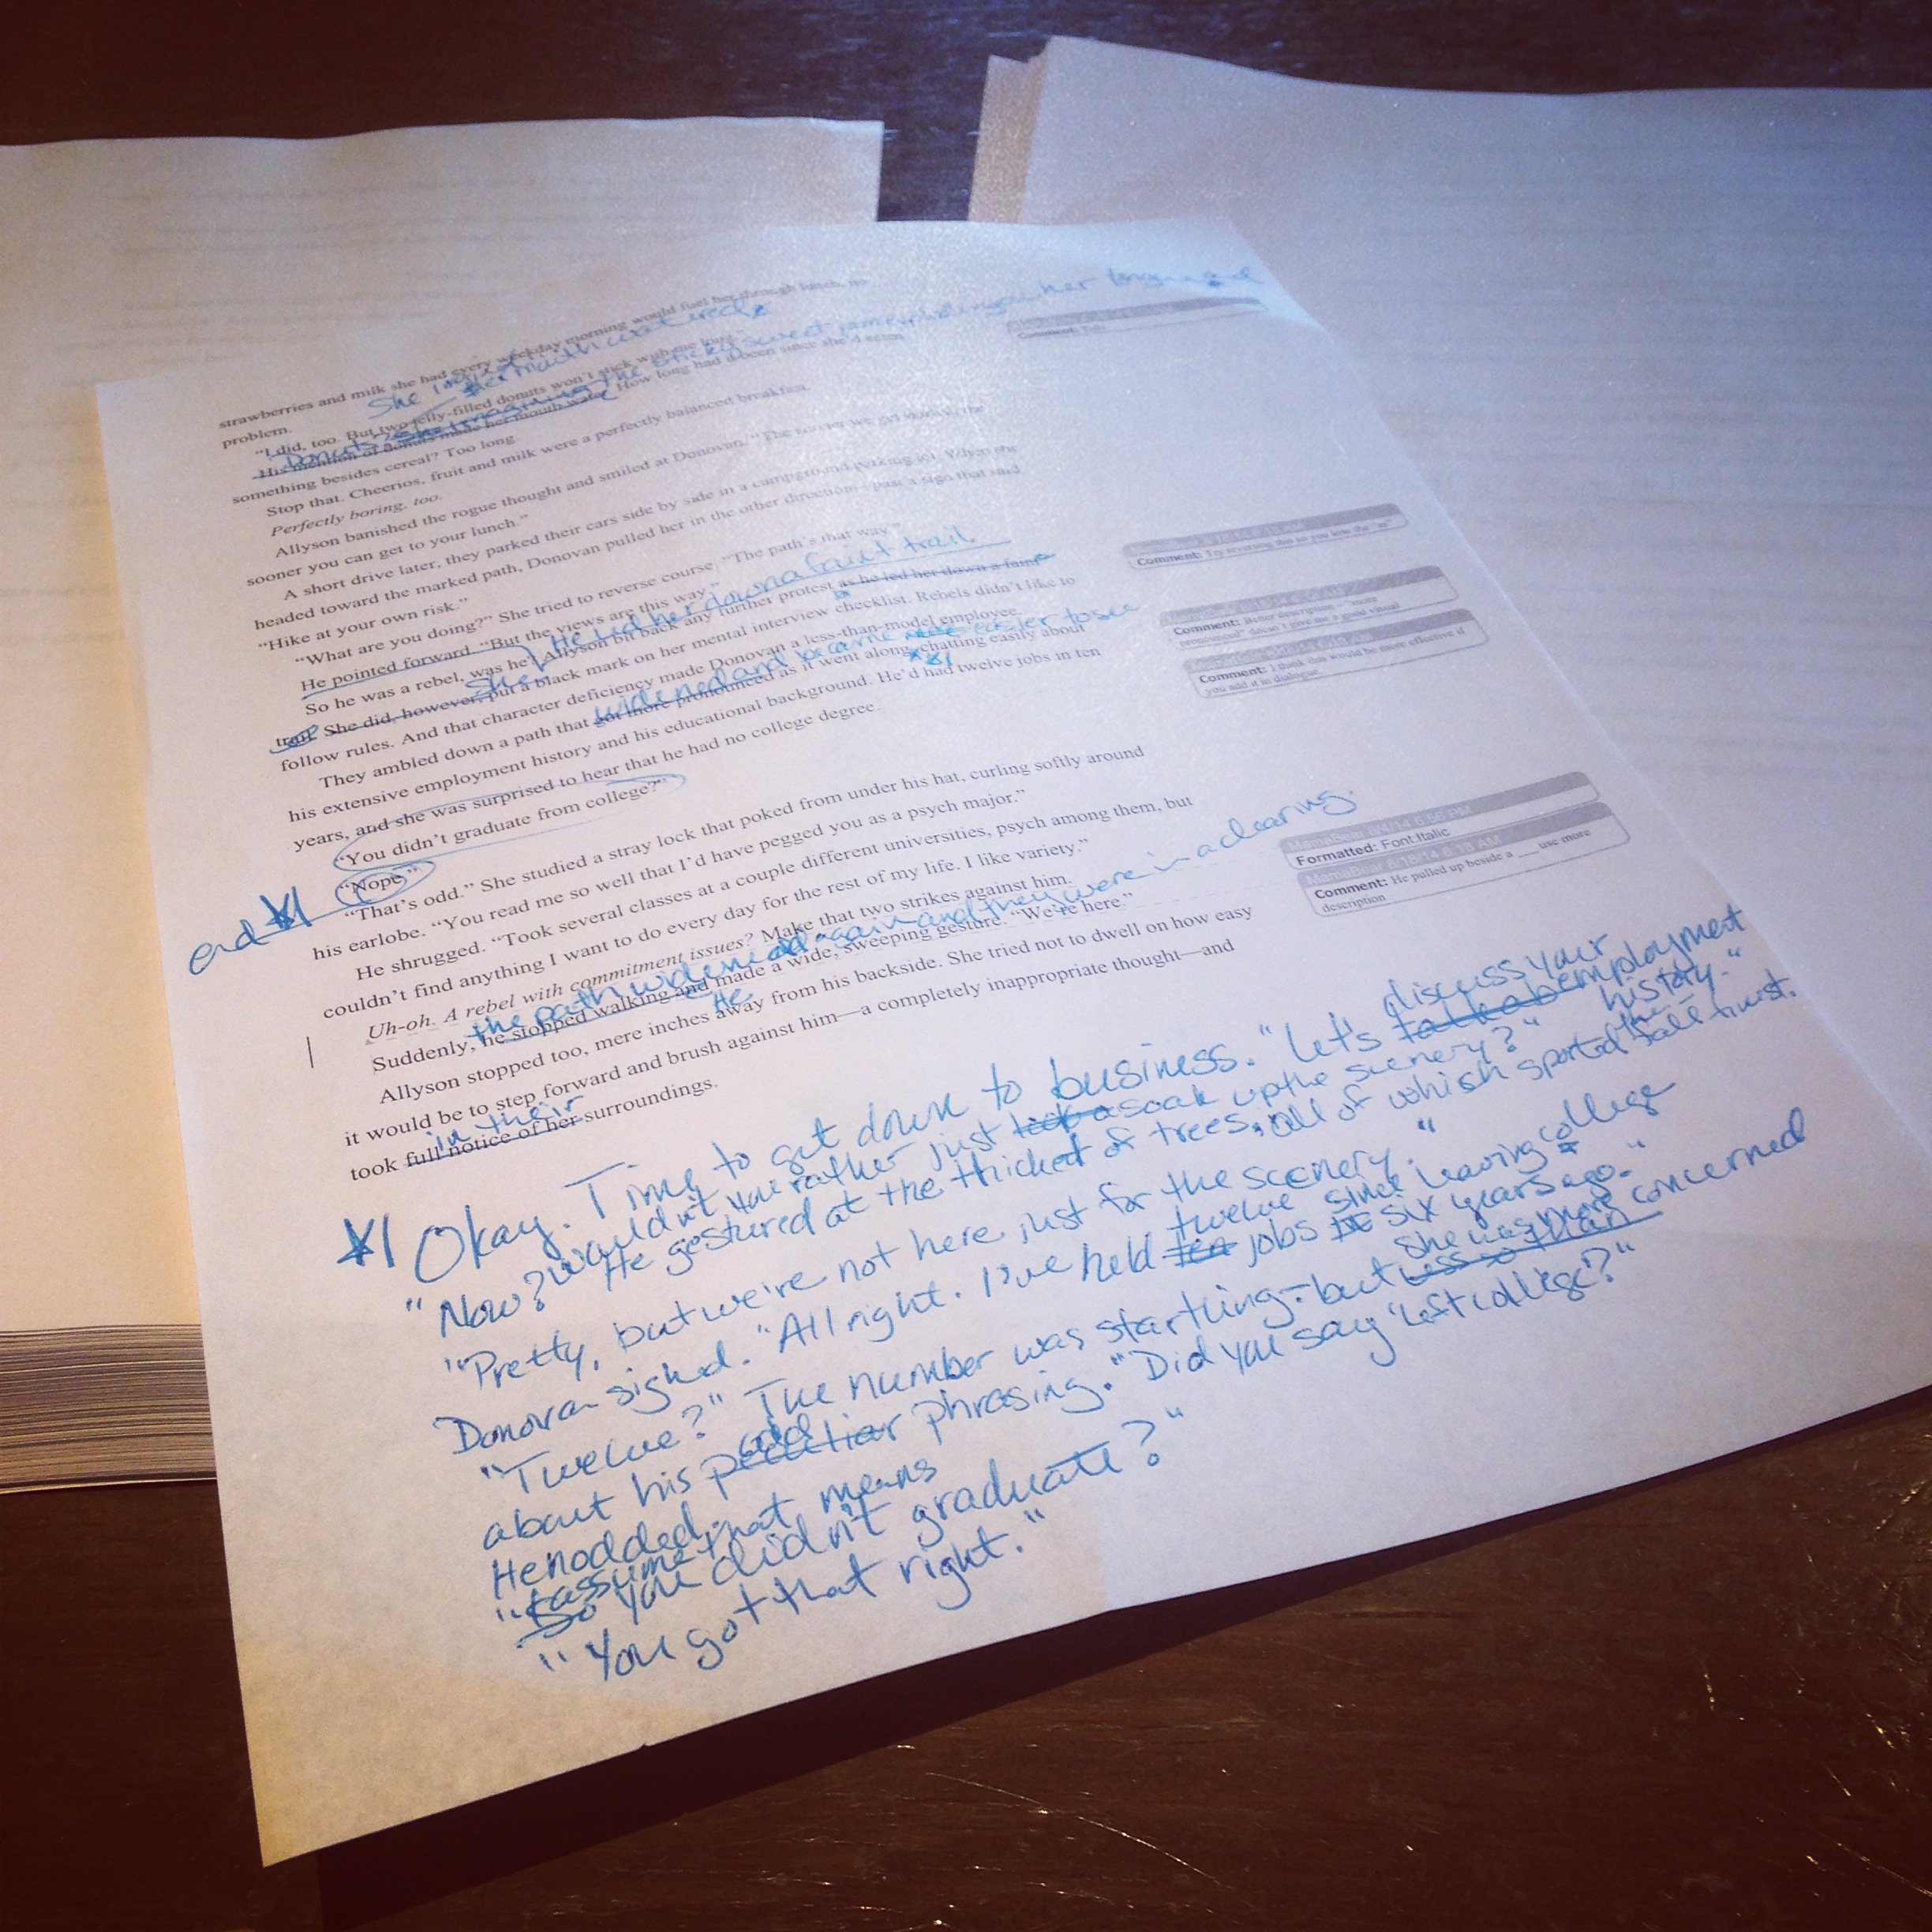 strawberries and milk she had every weekday morning would fuel her through lunch, no
She
her mouth watered
problem.
"I did, too. But two jelly-filled donuts won't stick with me long."
the sticky sweet
her tongue
Donuts?
His mention of donuts made her mouth water. How long had it been since she'd eaten
something besides cereal? Too long.
Stop that. Cheerios, fruit and milk were a perfectly balanced breakfast.
Perfectly boring, too.
Allyson banished the rogue thought and smiled at Donovan. "The sooner we get
sooner you can get to your lunch."
A short drive later, they parked their cars side by side in a campground parking lot. When she
headed toward the marked path, Donovan pulled her in the other direction—past a sign that said
"Hike at your own risk."
"What are you doing?" She tried to reverse course. "The path's that way."
He pointed forward. "But the views are this way."
He led her down a faint trail
So he was a rebel, was he? Allyson bit back any further protest as he led her down a faint
She
trail. She did, however, put a black mark on her mental interview checklist. Rebels didn't like to
follow rules. And that character deficiency made Donovan a less-than-model employee.
widened and became easier to see
They ambled down a path that got more pronounced as it went along, chatting easily about
*1
his extensive employment history and his educational background. He'd had twelve jobs in ten
years, and she was surprised to hear that he had no college degree.
"You didn't graduate from college?"
end *1
"Nope."
"That's odd." She studied a stray lock that poked from under his hat, curling softly around
his earlobe. "You read me so well that I'd have pegged you as a psych major."
He shrugged. "Took several classes at a couple different universities, psych among them, but
couldn't find anything I want to do every day for the rest of my life. I like variety."
Uh-oh. A rebel with commitment issues? Make that two strikes against him.
the path widened again and they were in a clearing.
Suddenly, he stopped walking and made a wide, sweeping gesture. "We're here."
He
Allyson stopped too, mere inches away from his backside. She tried not to dwell on how easy
it would be to step forward and brush against him—a completely inappropriate thought—and
in their
took full notice of her surroundings.
Comment:
Comment: Try rewriting this so you lose the "as"
Comment: Better description – "more
pronounced" doesn't give me a good visual
Comment: I think this would be more effective if
you add it in dialogue.
MamaBear 8/4/14 6:56 PM
Formatted: Font:Italic
MamaBear 8/18/14 6:18 AM
Comment: He pulled up beside a ___ use more
description
*1 Okay. Time to get down to business. "Let's talk ab discuss your employment history."
"Now? Wouldn't you rather just look a soak up the scenery?"
He gestured at the thicket of trees, all of which sported the fall
"Pretty, but we're not here just for the scenery."
Donovan sighed. "All right. I've held ten twelve jobs in since leaving college six years ago."
"Twelve?" The number was startling—but less so than she was more concerned
about his peculiar odd phrasing. "Did you say 'left college'?"
He nodded.
"So I assume that means you didn't graduate?"
"You got that right."